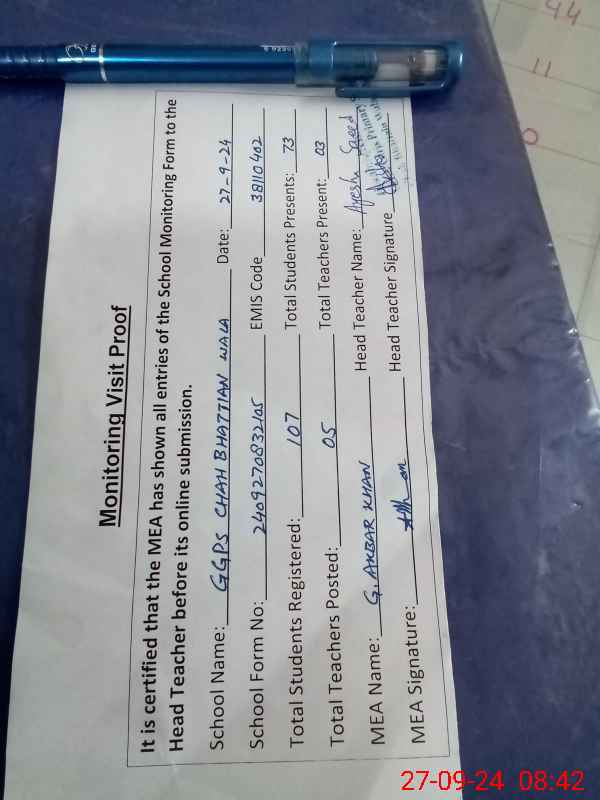 Monitoring Visit Proof
It is certified that the MEA has shown all entries of the School Monitoring Form to the
Head Teacher before its online submission.
School Name: GGPS CHAH BHATTIAN WALA Date: 27-9-24
School Form No: 2409270832105 EMIS Code 38110402
Total Students Registered: 107 Total Students Presents: 73
Total Teachers Posted: 05 Total Teachers Present: 03
MEA Name: G. AKBAR KHAN Head Teacher Name: Ayesha Saeed
MEA Signature: Head Teacher Signature
Primary
44
11
0
27-09-24 08:42